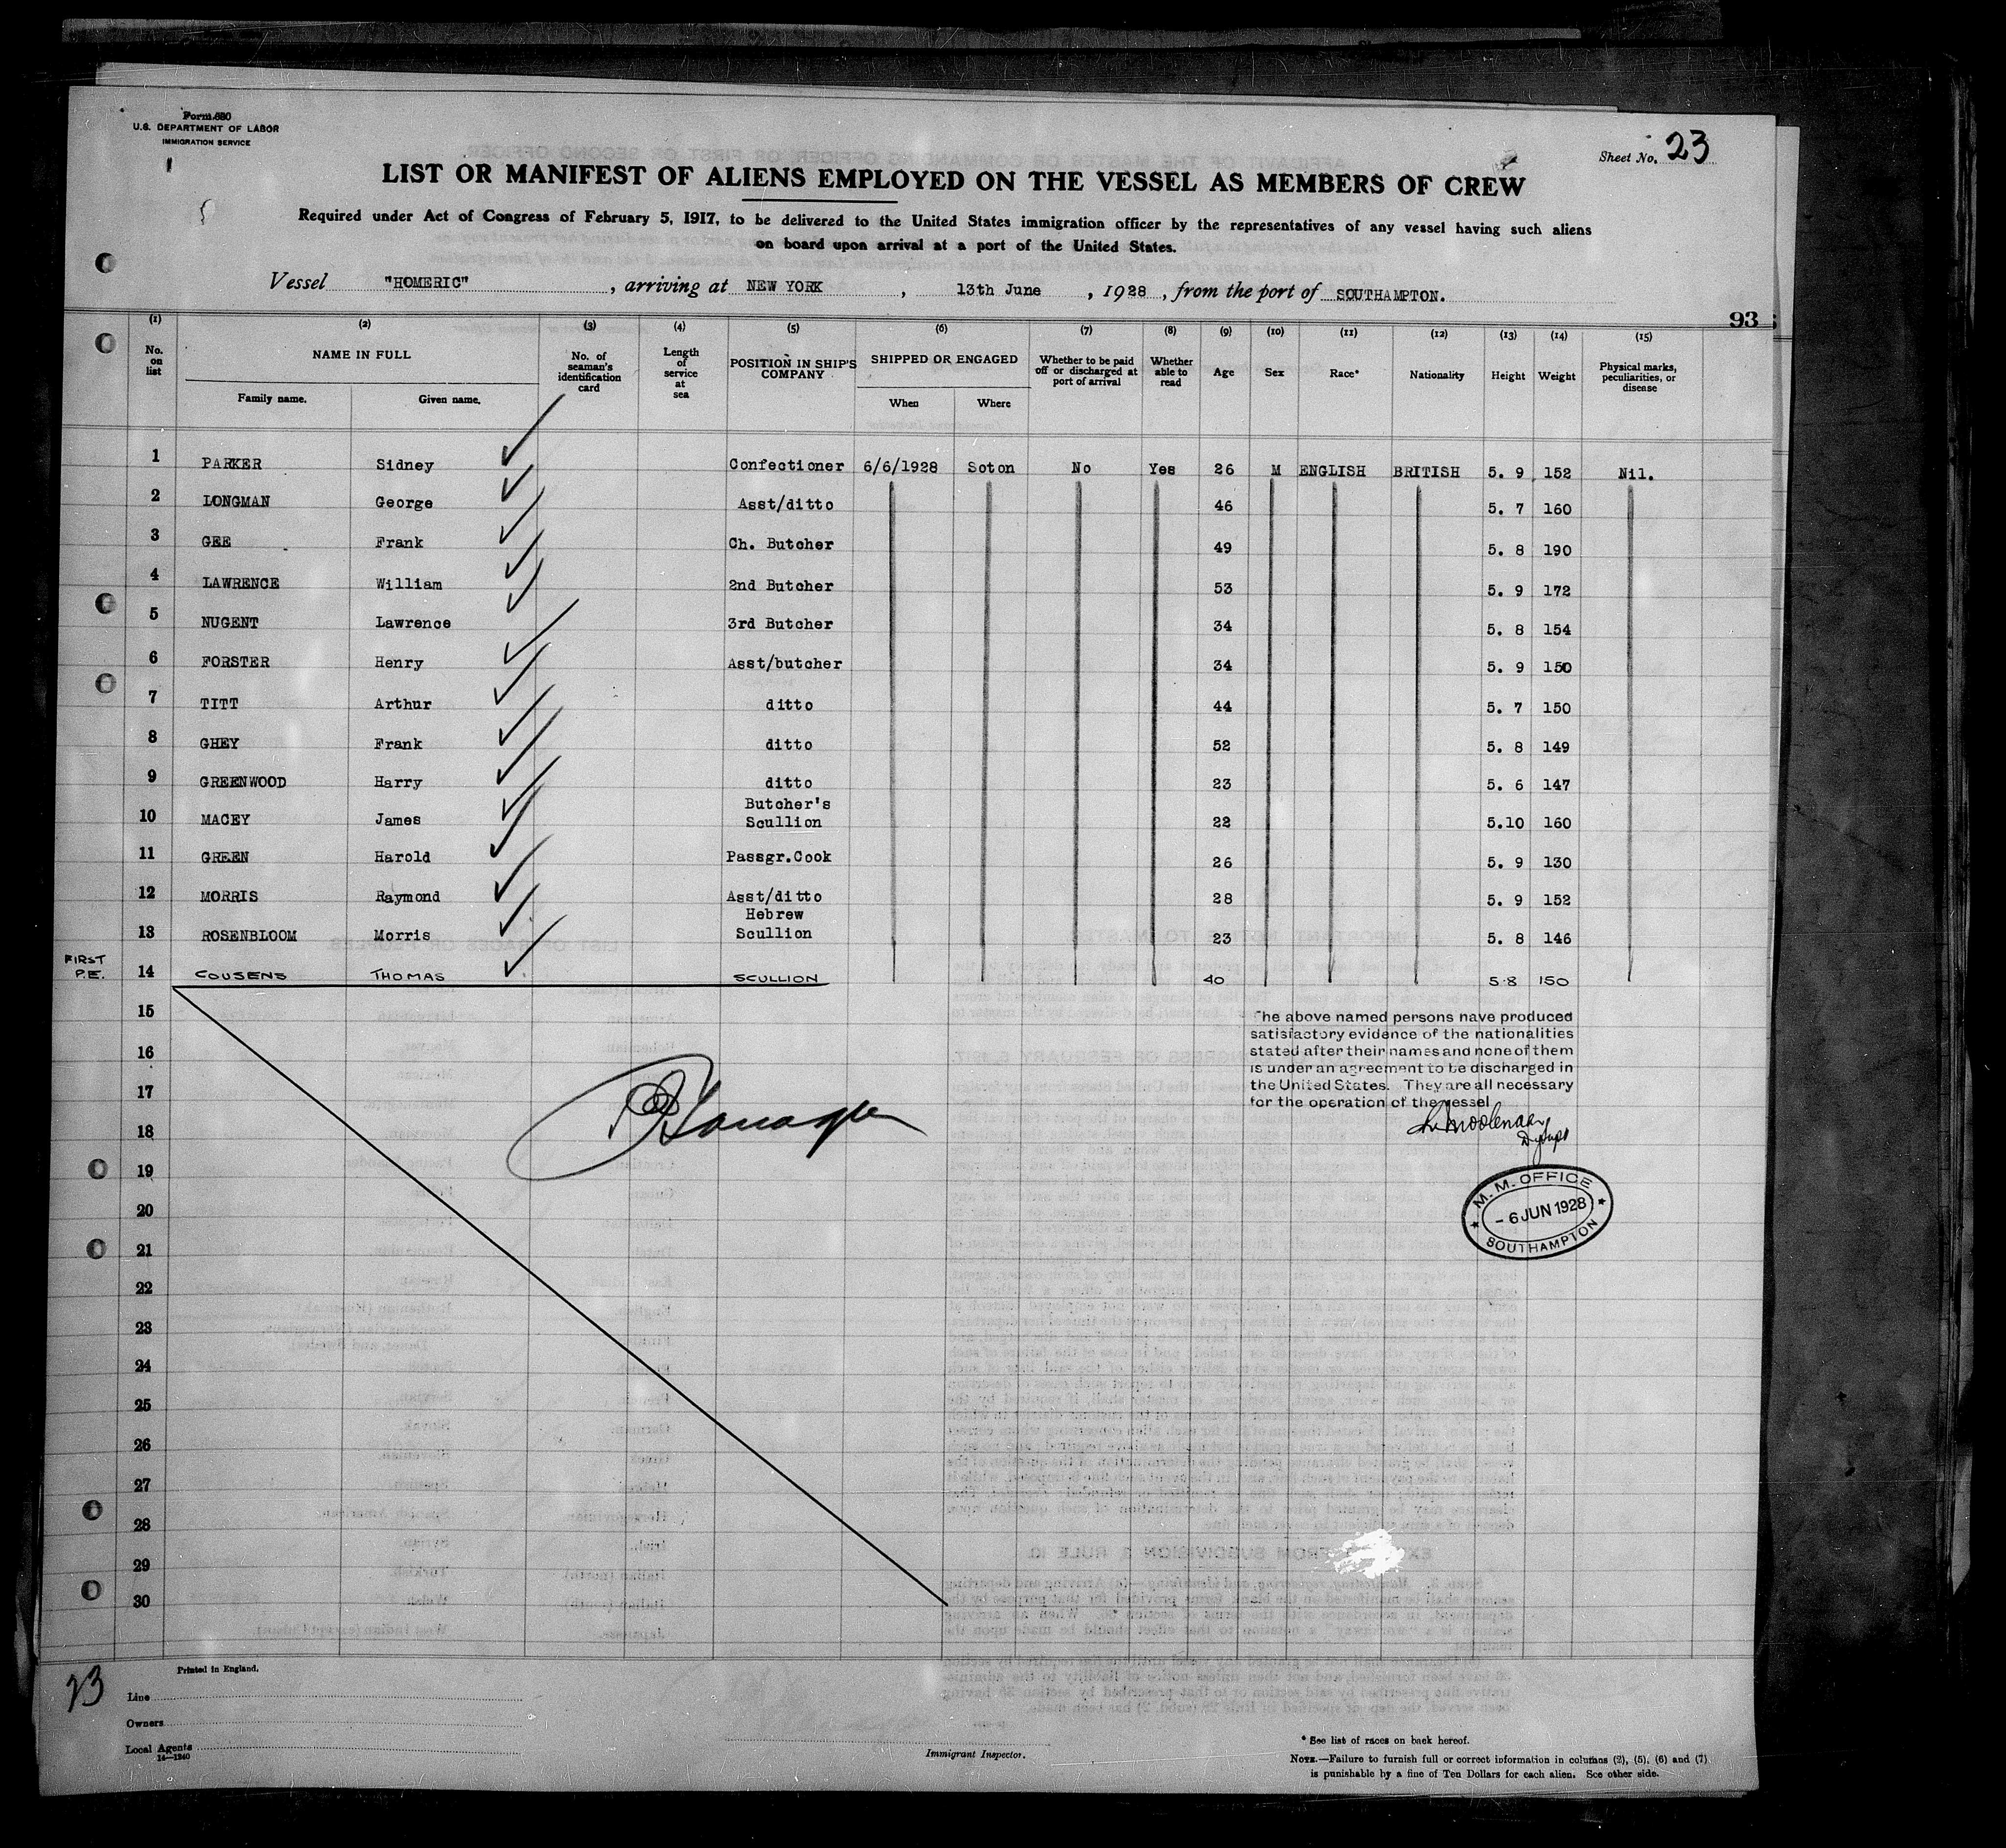 Form 680
U.S. DEPARTMENT OF LABOR
IMMIGRATION SERVICE
Sheet No. 23
LIST OR MANIFEST OF ALIENS EMPLOYED ON THE VESSEL AS MEMBERS OF CREW
Required under Act of Congress of February 5, 1917, to be delivered to the United States immigration officer by the representatives of any vessel having such aliens
on board upon arrival at a port of the United States.
Vessel "HOMERIC", arriving at NEW YORK, 13th June, 1928, from the port of SOUTHAMPTON.
93
(1) (2) (3) (4) (5) (6) (7) (8) (9) (10) (11) (12) (13) (14) (15)
No. on list NAME IN FULL No. of seaman's identification card Length of service at sea POSITION IN SHIP'S COMPANY SHIPPED OR ENGAGED Whether to be paid off or discharged at port of arrival Whether able to read Age Sex Race* Nationality Height Weight Physical marks, peculiarities, or disease
Family name. Given name. When Where
1 PARKER Sidney Confectioner 6/6/1928 Soton No Yes 26 M ENGLISH BRITISH 5. 9 152 Nil.
2 LONGMAN George Asst/ditto 46 5. 7 160
3 GEE Frank Ch. Butcher 49 5. 8 190
4 LAWRENCE William 2nd Butcher 53 5. 9 172
5 NUGENT Lawrence 3rd Butcher 34 5. 8 154
6 FORSTER Henry Asst/butcher 34 5. 9 150
7 TITT Arthur ditto 44 5. 7 150
8 GHEY Frank ditto 52 5. 8 149
9 GREENWOOD Harry ditto 23 5. 6 147
10 MACEY James Butcher's Scullion 22 5.10 160
11 GREEN Harold Passgr.Cook 26 5. 9 130
12 MORRIS Raymond Asst/ditto 28 5. 9 152
13 ROSENBLOOM Morris Hebrew Scullion 23 5. 8 146
FIRST P.E. 14 COUSENS THOMAS SCULLION 40 5.8 150
15
16
17
18
19
20
21
22
23
24
25
26
27
28
29
30
The above named persons have produced
satisfactory evidence of the nationalities
stated after their names and none of them
is under an agreement to be discharged in
the United States. They are all necessary
for the operation of the vessel
M. M. OFFICE
- 6 JUN 1928
SOUTHAMPTON
23
Printed in England.
Line
Owners
Local Agents
14—1240
Immigrant Inspector.
* See list of races on back hereof.
NOTE.—Failure to furnish full or correct information in columns (2), (5), (6) and (7)
is punishable by a fine of Ten Dollars for each alien. See other side.